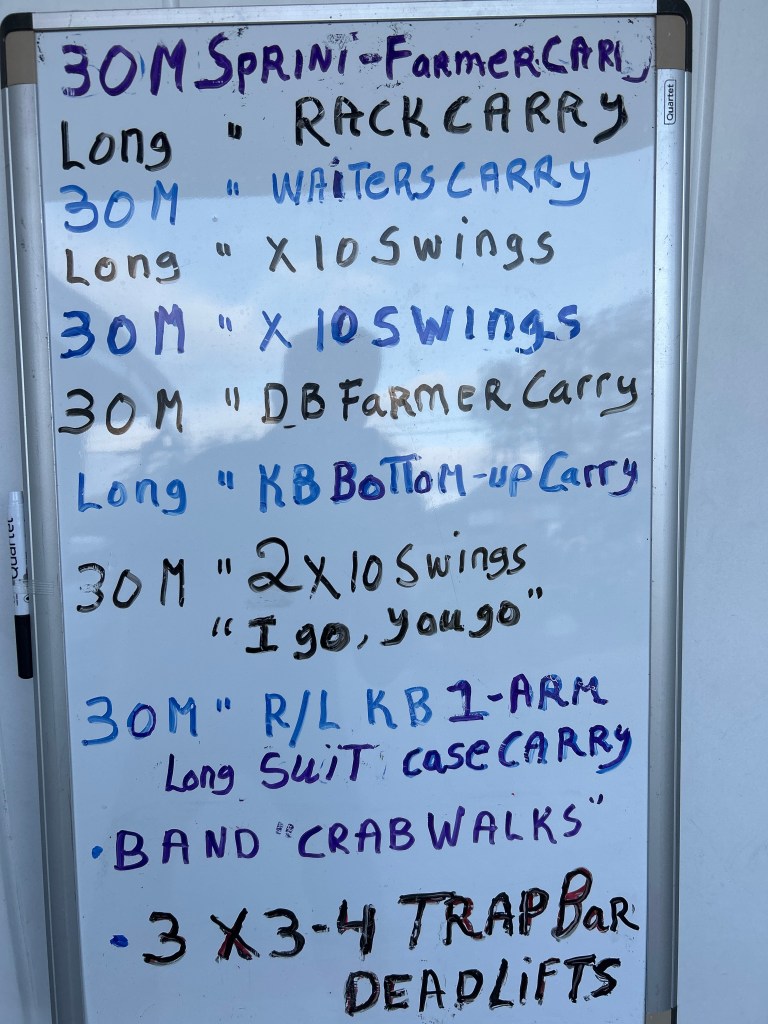 30M SPRINT - FARMER CARRY
Long " RACK CARRY
30M " WAITERS CARRY
Long " X 10 Swings
30M " X 10 SWINgs
30M " DB FARMER Carry
Long " KB BOTTOM-up Carry
30M " 2X10 Swings
"I go, you go"
30M " R/L KB 1-ARM
Long SUIT case CARRY
• BAND "CRAB WALKS"
• 3 X 3-4 TRAP BAR
DEADLIFTS
Quartet
Quartet